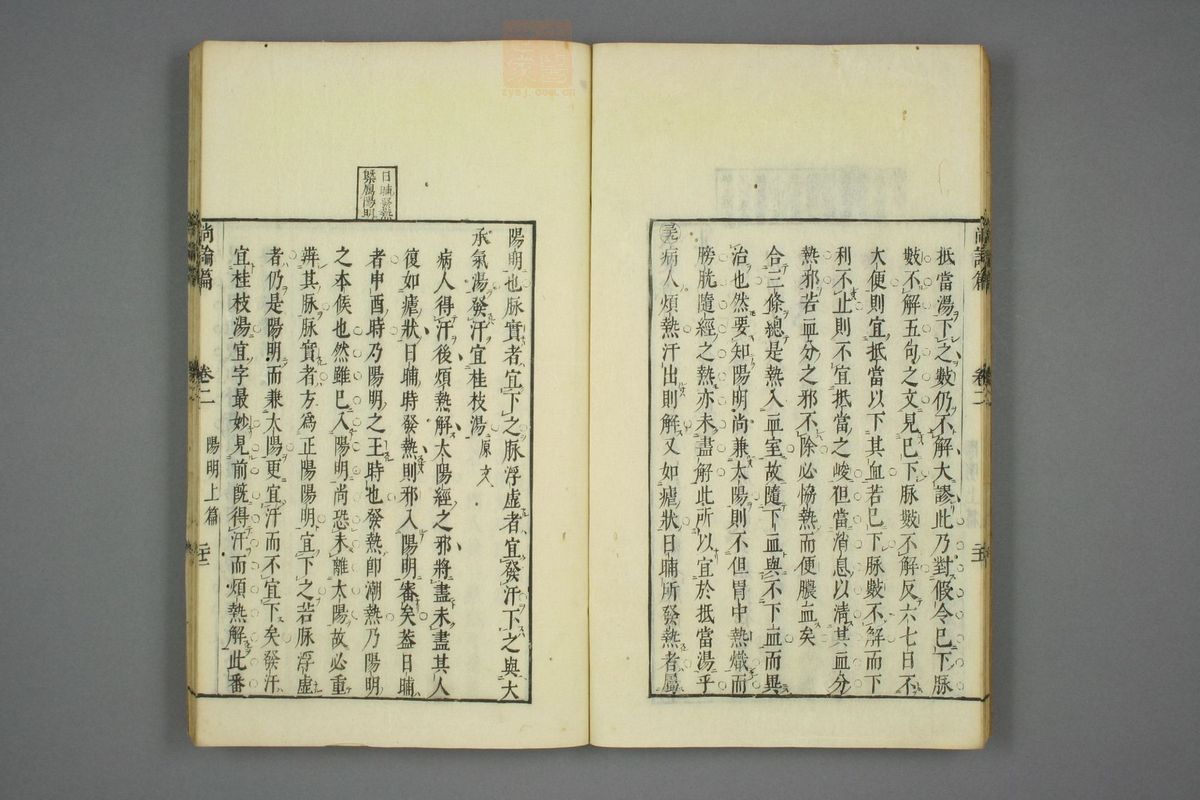 抵當湯下之數仍不解大謬此乃對假令已下脉
數不解五句之文見已下脉數不解反六七日不
大便則宜抵當以下其血若已下脉數不解而下
利不止則不宜抵當之峻但當消息以清其血分
熱邪若血分之邪不除必恊熱而便膿血矣
合三條總是熱入血室故隨下血與不下血而異
治也然要知陽明尚兼太陽則不但胃中熱熾而
膀胱隨經之熱亦未盡解此所以宜於抵當湯乎
病人煩熱汗出則解又如瘧狀日晡所發熱者屬
尚論篇 卷二
陽明也脉實者宜下之脉浮虛者宜發汗下之與大
承氣湯發汗宜桂枝湯原文
病人得汗後煩熱解太陽經之邪將盡未盡其人
復如瘧狀日晡時發熱則邪入陽明審矣蓋日晡
者申酉時乃陽明之王時也發熱卽潮熱乃陽明
之本候也然雖已入陽明尚恐未離太陽故必重
辨其脉脉實者方爲正陽陽明宜下之若脉浮虛
者仍是陽明而兼太陽更宜汗而不宜下矣發汗
宜桂枝湯宜字最妙見前旣得汗而煩熱解此番
尚論篇 卷二 陽明上篇
日晡發熱
zysj.com.cn